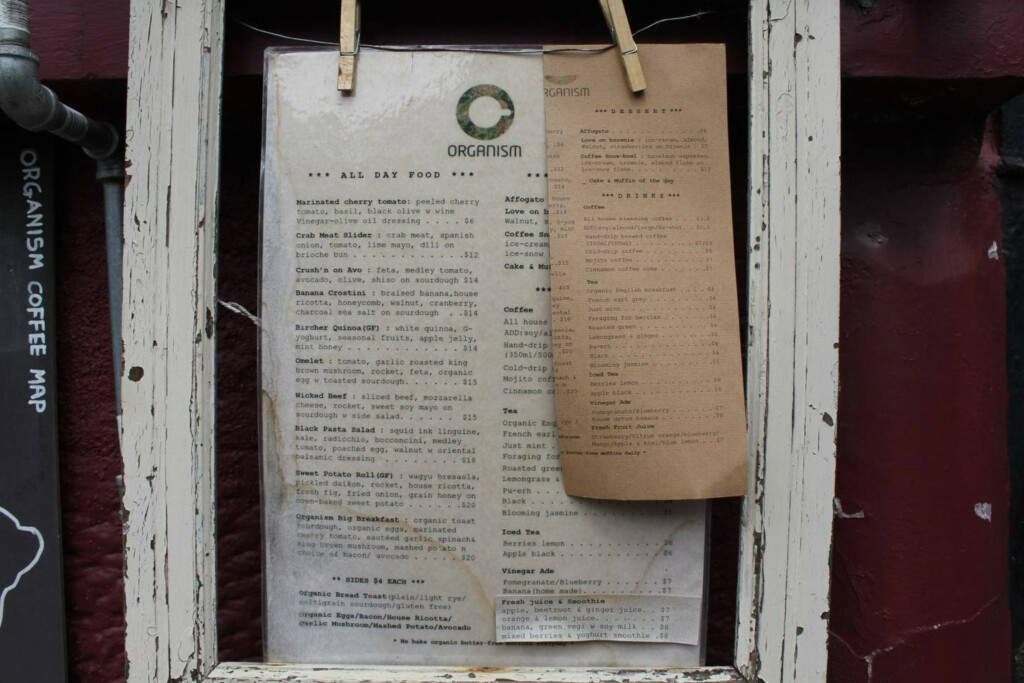 ORGANISM COFFEE MAP
ORGANISM
*** ALL DAY FOOD ***
Marinated cherry tomato: peeled cherry
tomato, basil, black olive w wine
Vinegar-olive oil dressing . . . . $6
Crab Meat Slider : crab meat, spanish
onion, tomato, lime mayo, dill on
brioche bun . . . . . . . . . . . .$12
Crush'n on Avo : feta, medley tomato,
avocado, olive, shiso on sourdough $14
Banana Crostini : braised banana,house
ricotta, honeycomb, walnut, cranberry,
charcoal sea salt on sourdough . .$14
Bircher Quinoa(GF) : white quinoa, G-
yoghurt, seasonal fruits, apple jelly,
mint honey . . . . . . . . . . . .$14
Omelet : tomato, garlic roasted king
brown mushroom, rocket, feta, organic
egg w toasted sourdough. . . . . . $15
Wicked Beef : sliced beef, mozzarella
cheese, rocket, sweet soy mayo on
sourdough w side salad. . . . . . .$15
Black Pasta Salad : squid ink linguine,
kale, radicchio, bocconcini, medley
tomato, poached egg, walnut w oriental
balsamic dressing . . . . . . . . $18
Sweet Potato Roll(GF) : wagyu bresaola,
pickled daikon, rocket, house ricotta,
fresh fig, fried onion, grain honey on
oven-baked sweet potato . . . . . .$20
Organism Big Breakfast : organic toast
sourdough, organic eggs, marinated
cherry tomato, sautéed garlic spinach
king brown mushroom, mashed potato n
choice of bacon/ avocado . . . . . $20
** SIDES $4 EACH ***
Organic Bread Toast(plain/light rye/
multigrain sourdough/gluten free)
Organic Eggs/Bacon/House Ricotta/
Garlic Mushroom/Mashed Potato/Avocado
* We bake organic butter-free
Affogato
Love on b
Walnut, s
Coffee Sn
ice-cream
ice-snow
Cake & Mu
Coffee
All house
ADD:soy/al
Hand-drip
(350ml/500
Cold-drip
Mojito cof
Cinnamon
Tea
Organic Eng
French earl
Just mint .
Foraging for
Roasted gree
Lemongrass &
Pu-erh . .
Black . . .
Blooming jasmine . . . . . . . .
Iced Tea
Berries lemon . . . . . . . . . $6
Apple black . . . . . . . . . . $6
Vinegar Ade
Pomegranate/Blueberry . . . . . . $7
Banana(home made). . . . . . . . $7
Fresh juice & Smoothie
apple, beetroot & ginger juice. . $7
orange & lemon juice. . . . . . . $7
banana, green vegi w soy milk . . $8
mixed berries & yoghurt smoothie .$8
RGANISM
*** DESSERT ***
Affogato . . . . . . . . . . $6
Love on brownie : ice-cream, almond,
Walnut, strawberries on brownie . $7
Coffee Snow-bowl : hazelnut cupcakes,
ice-cream, brownie, almond flake on
ice-snow flake. . . . . . . . . $13
_ Cake & Muffin of the day
*** DRINKS ***
Coffee
All house blending coffee
Hand-drip brewed coffee
(350ml/500ml)
Cold-drip coffee
Mojito coffee
Cinnamon coffee cone
Tea
Organic English breakfast
French earl grey
Just mint
Foraging for berries
Roasted green
Lemongrass & ginger
Pu-erh
Black
Blooming jasmine
Iced Tea
Berries lemon
Apple black
Vinegar Ade
Pomegranate/Blueberry
Fresh Fruit Juice
Strawberry/Citrus orange/blueberry/